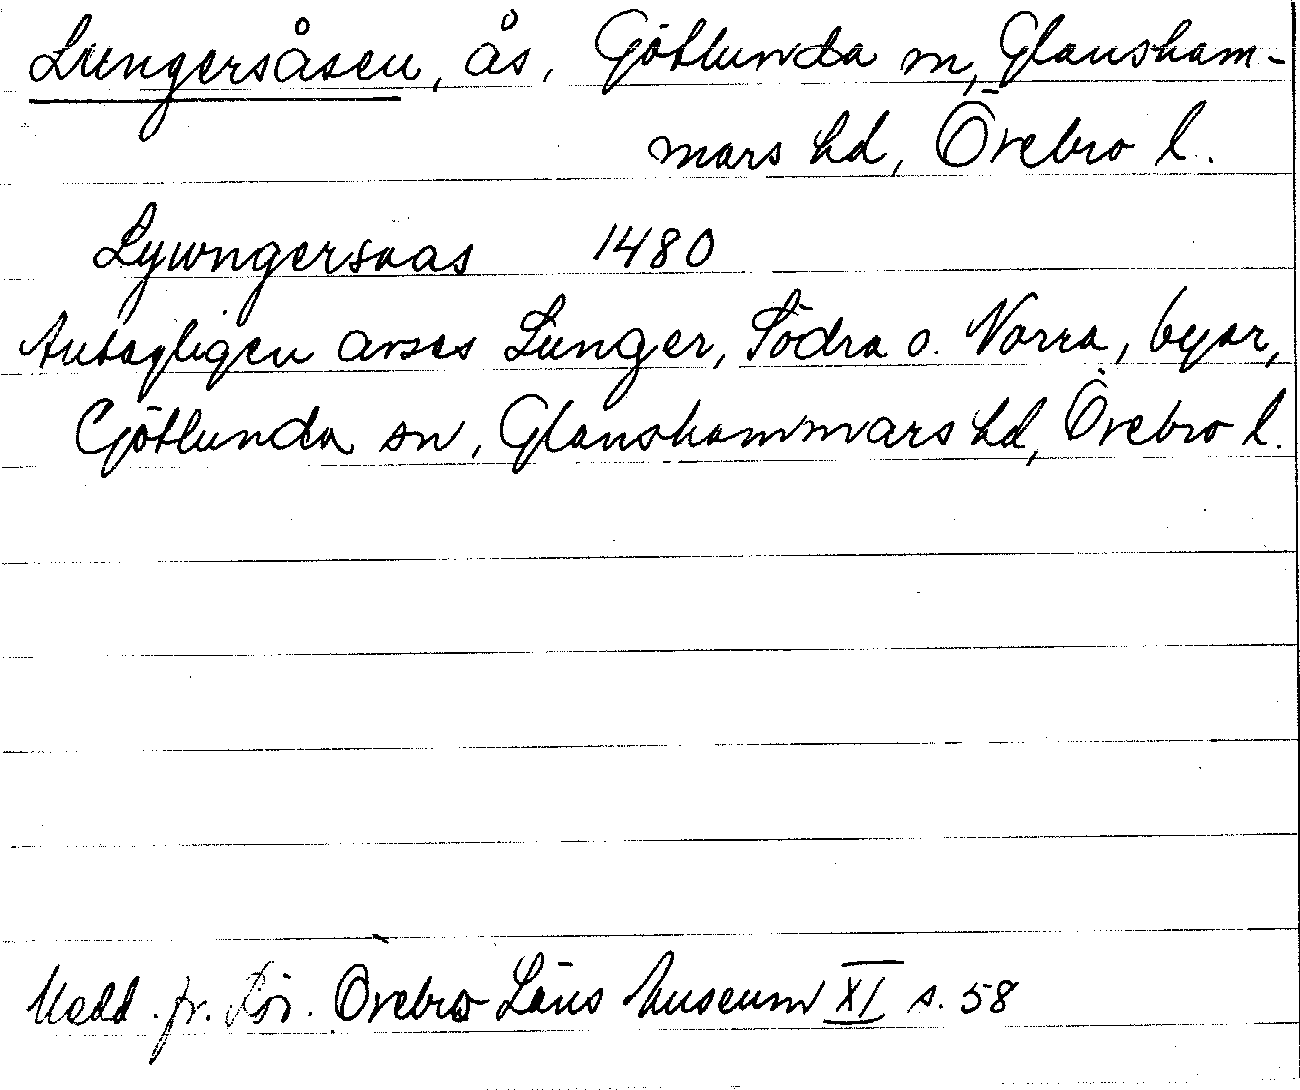 Lungersåsen, ås, Götlunda sn, Glansham-
mars hd, Örebro l.
Lywngersaas 1480
Antagligen avses Lunger, Södra o. Norra, byar,
Götlunda sn, Glanshammars hd, Örebro l.
Medd. fr. För. Örebro Läns museum XI s. 58